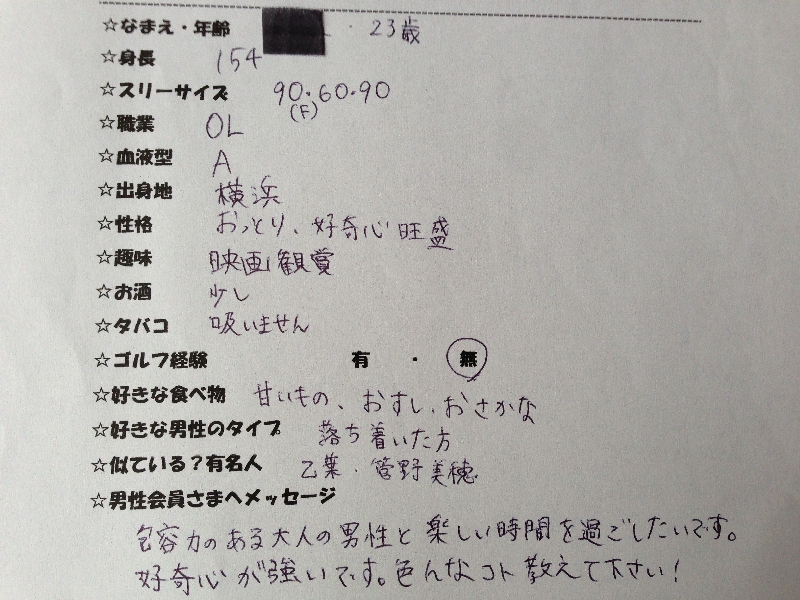 ☆なまえ・年齢 ・ 23歳
☆身長 154
☆スリーサイズ 90.60.90
(F)
☆職業 OL
☆血液型 A
☆出身地 横浜
☆性格 おっとり、好奇心旺盛
☆趣味 映画観賞
☆お酒 少し
☆タバコ 吸いません
☆ゴルフ経験 有 ・ 無
☆好きな食べ物 甘いもの、おすし、おさかな
☆好きな男性のタイプ 落ち着いた方
☆似ている?有名人 乙葉・菅野美穂
☆男性会員さまへメッセージ
包容力のある大人の男性と楽しい時間を過ごしたいです。
好奇心が強いです。色んなコト教えて下さい!